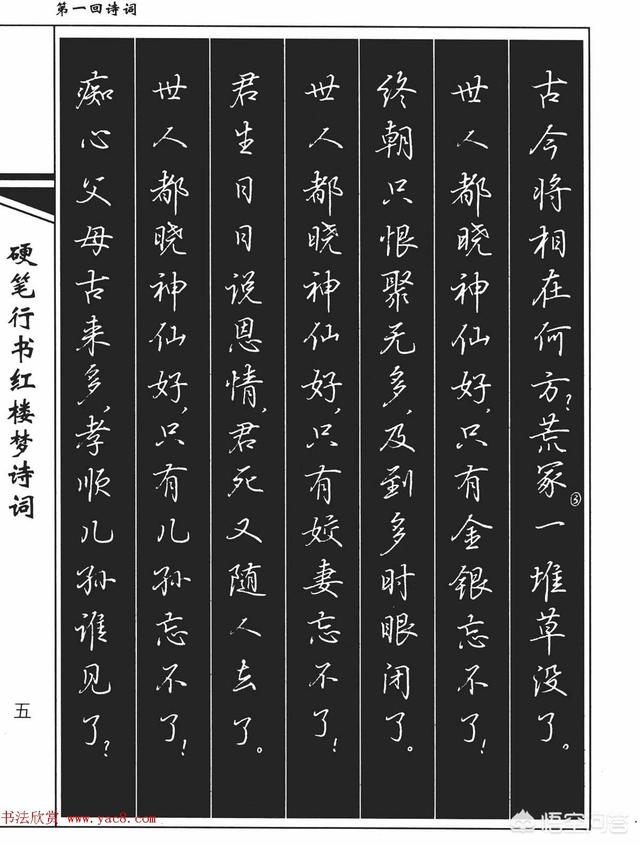 第一回诗词
古今将相在何方?荒冢③一堆草没了。
世人都晓神仙好,只有金银忘不了!
终朝只恨聚无多,及到多时眼闭了。
世人都晓神仙好,只有姣妻忘不了!
君生日日说恩情,君死又随人去了。
世人都晓神仙好,只有儿孙忘不了!
痴心父母古来多,孝顺儿孙谁见了?
硬笔行书红楼梦诗词
五
书法欣赏 www.yac8.com
悟空问答